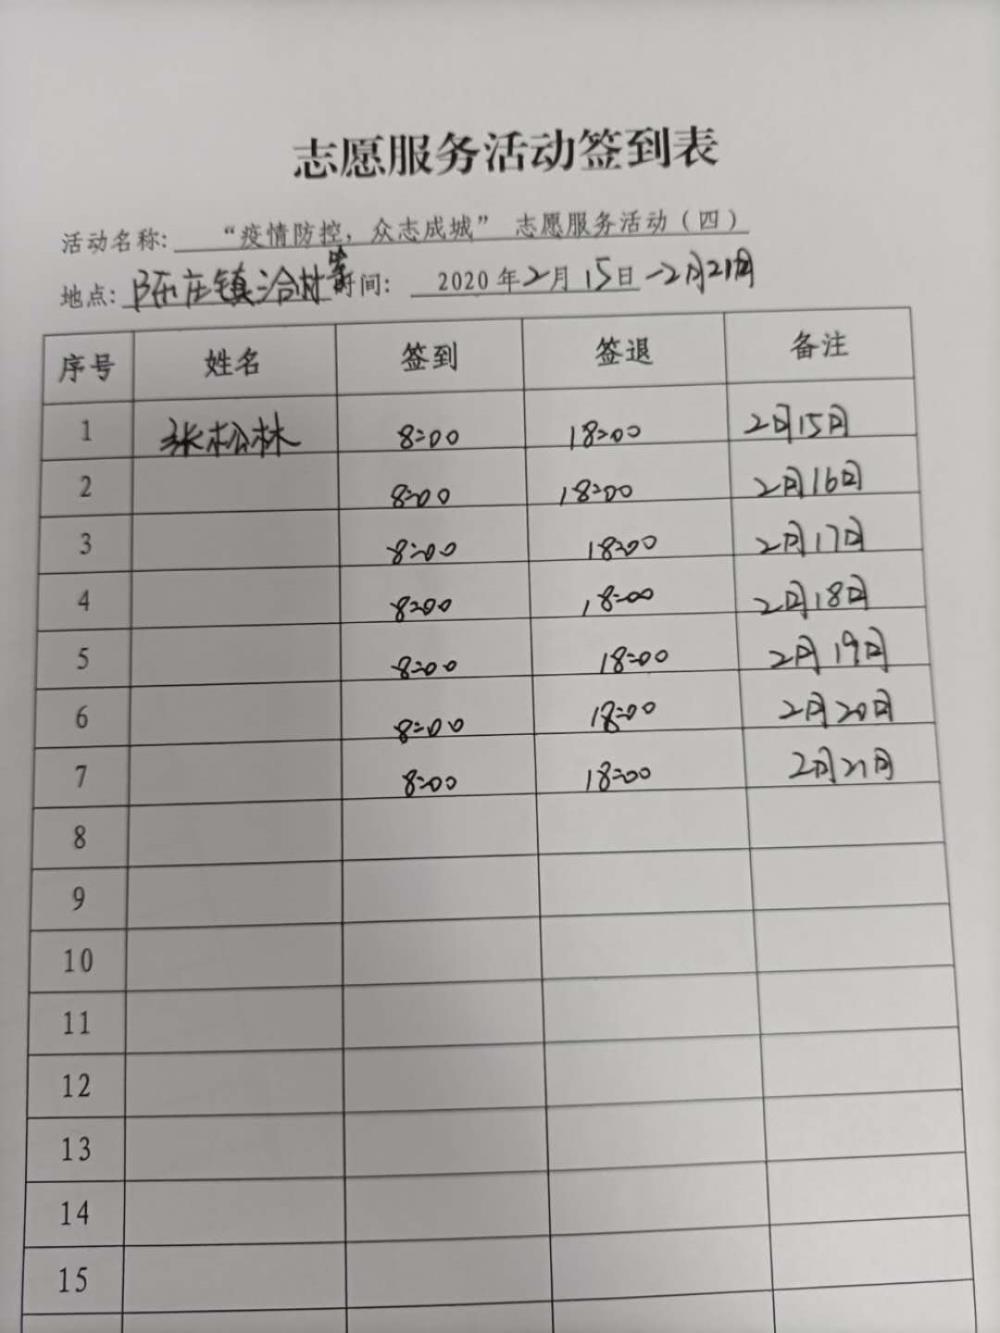 志愿服务活动签到表
活动名称: “疫情防控, 众志成城” 志愿服务活动（四）
地点: 陈庄镇洽村 时间: 2020年2月15日-2月21日
序号 姓名 签到 签退 备注
1 张松林 8:00 18:00 2月15日
2 8:00 18:00 2月16日
3 8:00 18:00 2月17日
4 8:00 18:00 2月18日
5 8:00 18:00 2月19日
6 8:00 18:00 2月20日
7 8:00 18:00 2月21日
8
9
10
11
12
13
14
15